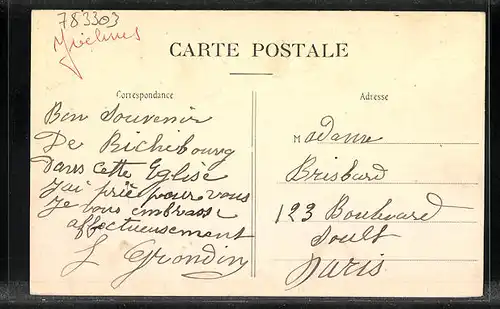 783303
Yvelines
CARTE POSTALE
Correspondance
Bon Souvenir
De Richebourg
Dans cette Eglise
J'ai prié pour vous
Je vous embrasse
affectueusement
L Grondin
Adresse
Madame
Brisbard
123 Boulevard
Soult
Paris